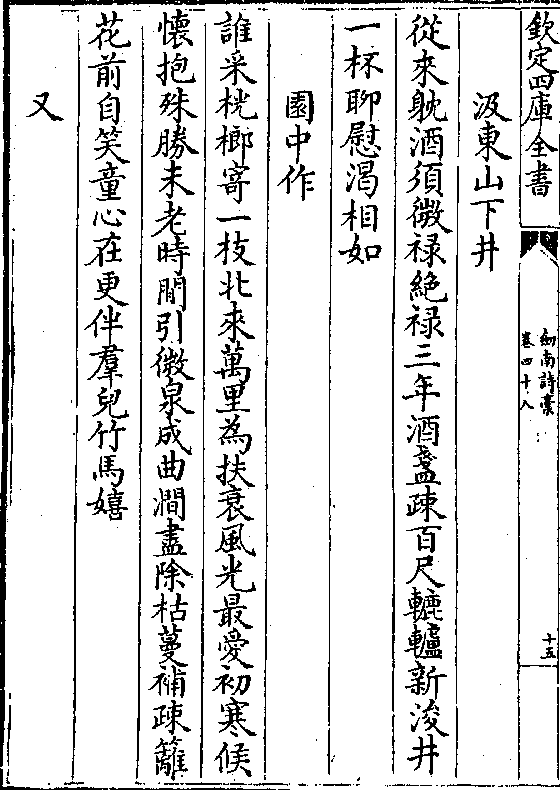 欽定四庫全書
劍南詩稾
卷四十八
十五
汲東山下井
從來躭酒須微祿絶祿三年酒盞疎百尺轆轤新浚井
一杯聊慰渴相如
園中作
誰采桄榔寄一枝北來萬里為扶衰風光最愛初寒候
懷抱殊勝未老時閒引微泉成曲澗盡除枯蔓補疎籬
花前自笑童心在更伴羣兒竹馬嬉
又